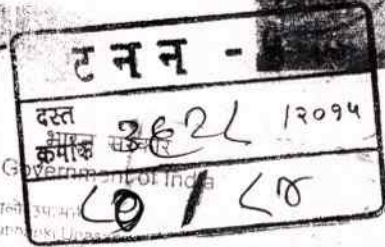 ट न न -
दस्त
क्रमांक ३६२८ /२०१५
भारत सरकार
Government of India
/ ८४